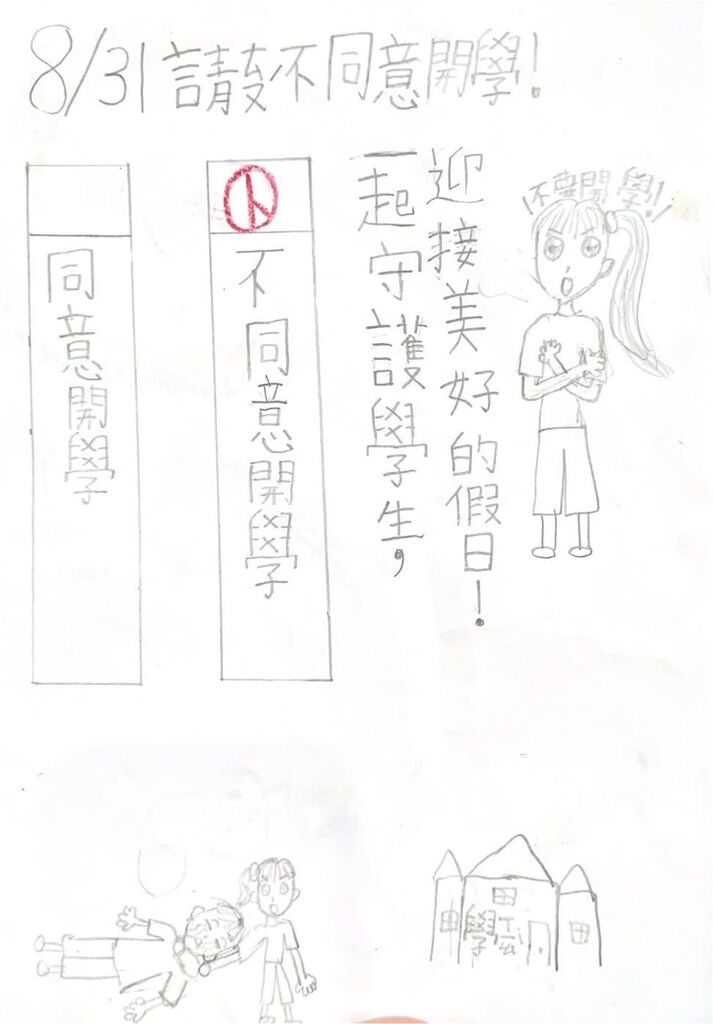 8/31 請不同意開學!
同意開學
卜
不同意開學
一起守護學生,
迎接美好的假日!
不要開學!
學